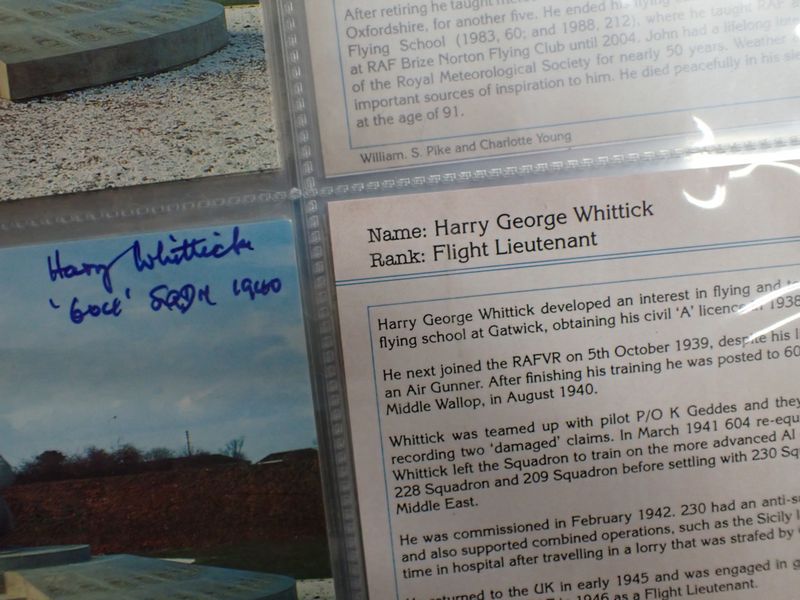 After retiring he taught
Oxfordshire, for another five. He ended his flying
Flying School (1983, 60; and 1988, 212), where he taught RAF
at RAF Brize Norton Flying Club until 2004. John had a lifelong
of the Royal Meteorological Society for nearly 50 years. Weather
important sources of inspiration to him. He died peacefully in his
at the age of 91.
William. S. Pike and Charlotte Young
Harry Whittick
'604' SQDN 1940
Name: Harry George Whittick
Rank: Flight Lieutenant
Harry George Whittick developed an interest in flying and
flying school at Gatwick, obtaining his civil 'A' licence in 1938
He next joined the RAFVR on 5th October 1939, despite his
an Air Gunner. After finishing his training he was posted to 60
Middle Wallop, in August 1940.
Whittick was teamed up with pilot P/O K Geddes and they
recording two 'damaged' claims. In March 1941 604 re-equ
Whittick left the Squadron to train on the more advanced AI
228 Squadron and 209 Squadron before settling with 230 Squ
Middle East.
He was commissioned in February 1942. 230 had an anti-su
and also supported combined operations, such as the Sicily
time in hospital after travelling in a lorry that was strafed by
returned to the UK in early 1945 and was engaged in
1946 as a Flight Lieutenant.